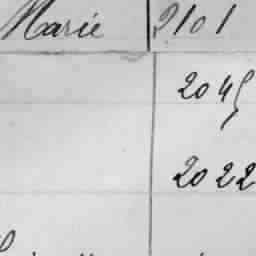 Marie 2101
2045
2022